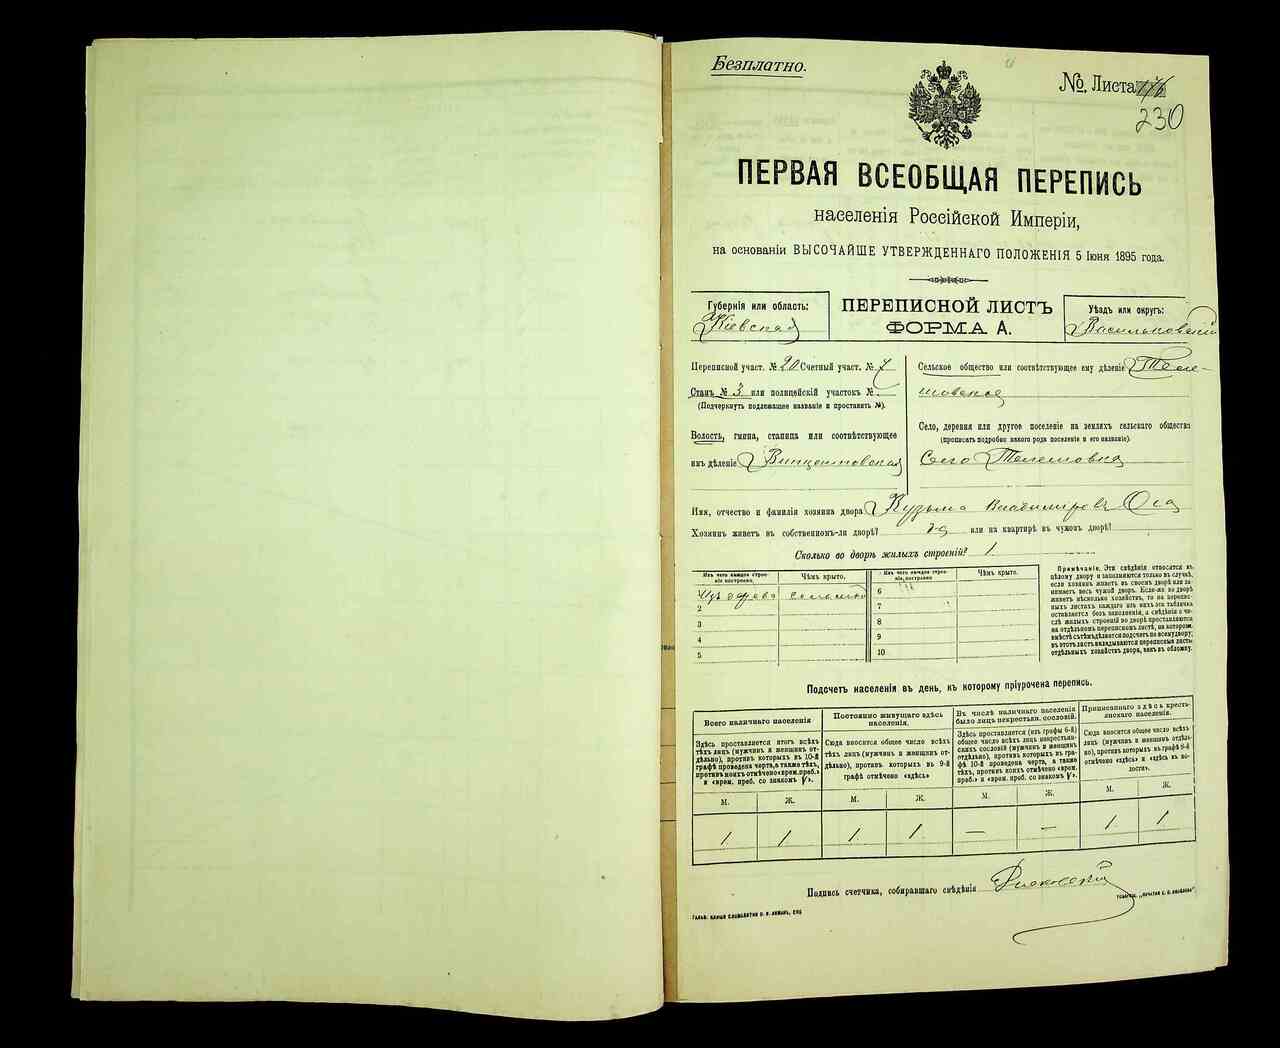 Безплатно.
№. Листа
230
ПЕРВАЯ ВСЕОБЩАЯ ПЕРЕПИСЬ
населенія Россійской Имперіи,
на основаніи ВЫСОЧАЙШЕ УТВЕРЖДЕННАГО ПОЛОЖЕНІЯ 5 Іюня 1895 года.
Губернія или область:
Кіевская
ПЕРЕПИСНОЙ ЛИСТЪ
ФОРМА А.
Уѣздъ или округъ:
Васильковскій
Переписной участ. № 20 Счетный участ. № 7
Станъ № 3 или полицейскій участокъ №
(Подчеркнуть подлежащее названіе и проставить №).
Волость, гмина, станица или соотвѣтствующее
имъ дѣленіе Винцентовская
Сельское общество или соотвѣтствующее ему дѣленіе Теле-
шовское
Село, деревня или другое поселеніе на земляхъ сельскаго общества
(прописать подробно какого рода поселеніе и его названіе).
Село Телешовка
Имя, отчество и фамилія хозяина двора Кузьма Владиміровъ Оса
Хозяинъ живетъ въ собственномъ-ли дворѣ? да или на квартирѣ въ чужомъ дворѣ?
Сколько во дворѣ жилыхъ строеній? 1.
Изъ чего каждое строе-
ніе построено.
Чѣмъ крыто.
Изъ дерева соломою
2
3
4
5
Изъ чего каждое строе-
ніе, построено
Чѣмъ крыто.
6
7
8
9
10
Примѣчаніе. Эти свѣдѣнія относятся къ
цѣлому двору и заполняются только въ случаѣ,
если хозяинъ живетъ въ своемъ дворѣ или за-
нимаетъ весь чужой дворъ. Если-же во дворѣ
живетъ нѣсколько хозяйствъ, то на перепис-
ныхъ листахъ каждаго изъ нихъ эта табличка
оставляется безъ заполненія, а свѣдѣнія о чи-
слѣ жилыхъ строеній во дворѣ проставляются
на отдѣльномъ переписномъ листѣ, на которомъ
вмѣстѣ съ тѣмъ дѣлается подсчетъ по всему двору;
въ этотъ листъ вкладываются переписные листы
отдѣльныхъ хозяйствъ двора, какъ въ обложку.
Подсчетъ населенія въ день, къ которому пріурочена перепись.
Всего наличнаго населенія
Здѣсь проставляется итогъ всѣхъ
тѣхъ лицъ (мужчинъ и женщинъ от-
дѣльно), противъ которыхъ въ 10-й
графѣ проведена черта, а также тѣхъ,
противъ коихъ отмѣчено «врем. преб.»
и «врем. преб. со знакомъ V».
Постоянно живущаго здѣсь
населенія.
Сюда вносится общее число всѣхъ
тѣхъ лицъ (мужчинъ и женщинъ от-
дѣльно), противъ которыхъ въ 9-й
графѣ отмѣчено «здѣсь»
Въ числѣ наличнаго населенія
было лицъ некрестьян. сословій.
Здѣсь проставляется (изъ графы 6-й)
общее число всѣхъ лицъ некрестьян-
скихъ сословій (мужчинъ и женщинъ
отдѣльно), противъ которыхъ въ гра-
фѣ 10-й проведена черта, а также
тѣхъ, противъ коихъ отмѣчено «врем.
преб.» и «врем. преб. со знакомъ V».
Приписаннаго здѣсь кресть-
янскаго населенія.
Сюда вносится общее число всѣхъ
лицъ (мужчинъ и женщинъ отдѣль-
но), противъ которыхъ въ графѣ 8-й
отмѣчено «здѣсь» и «здѣсь въ во-
лости».
М. Ж. М. Ж. М. Ж. М. Ж.
1 1 1 1 — — 1 1
Подпись счетчика, собиравшаго свѣдѣнія